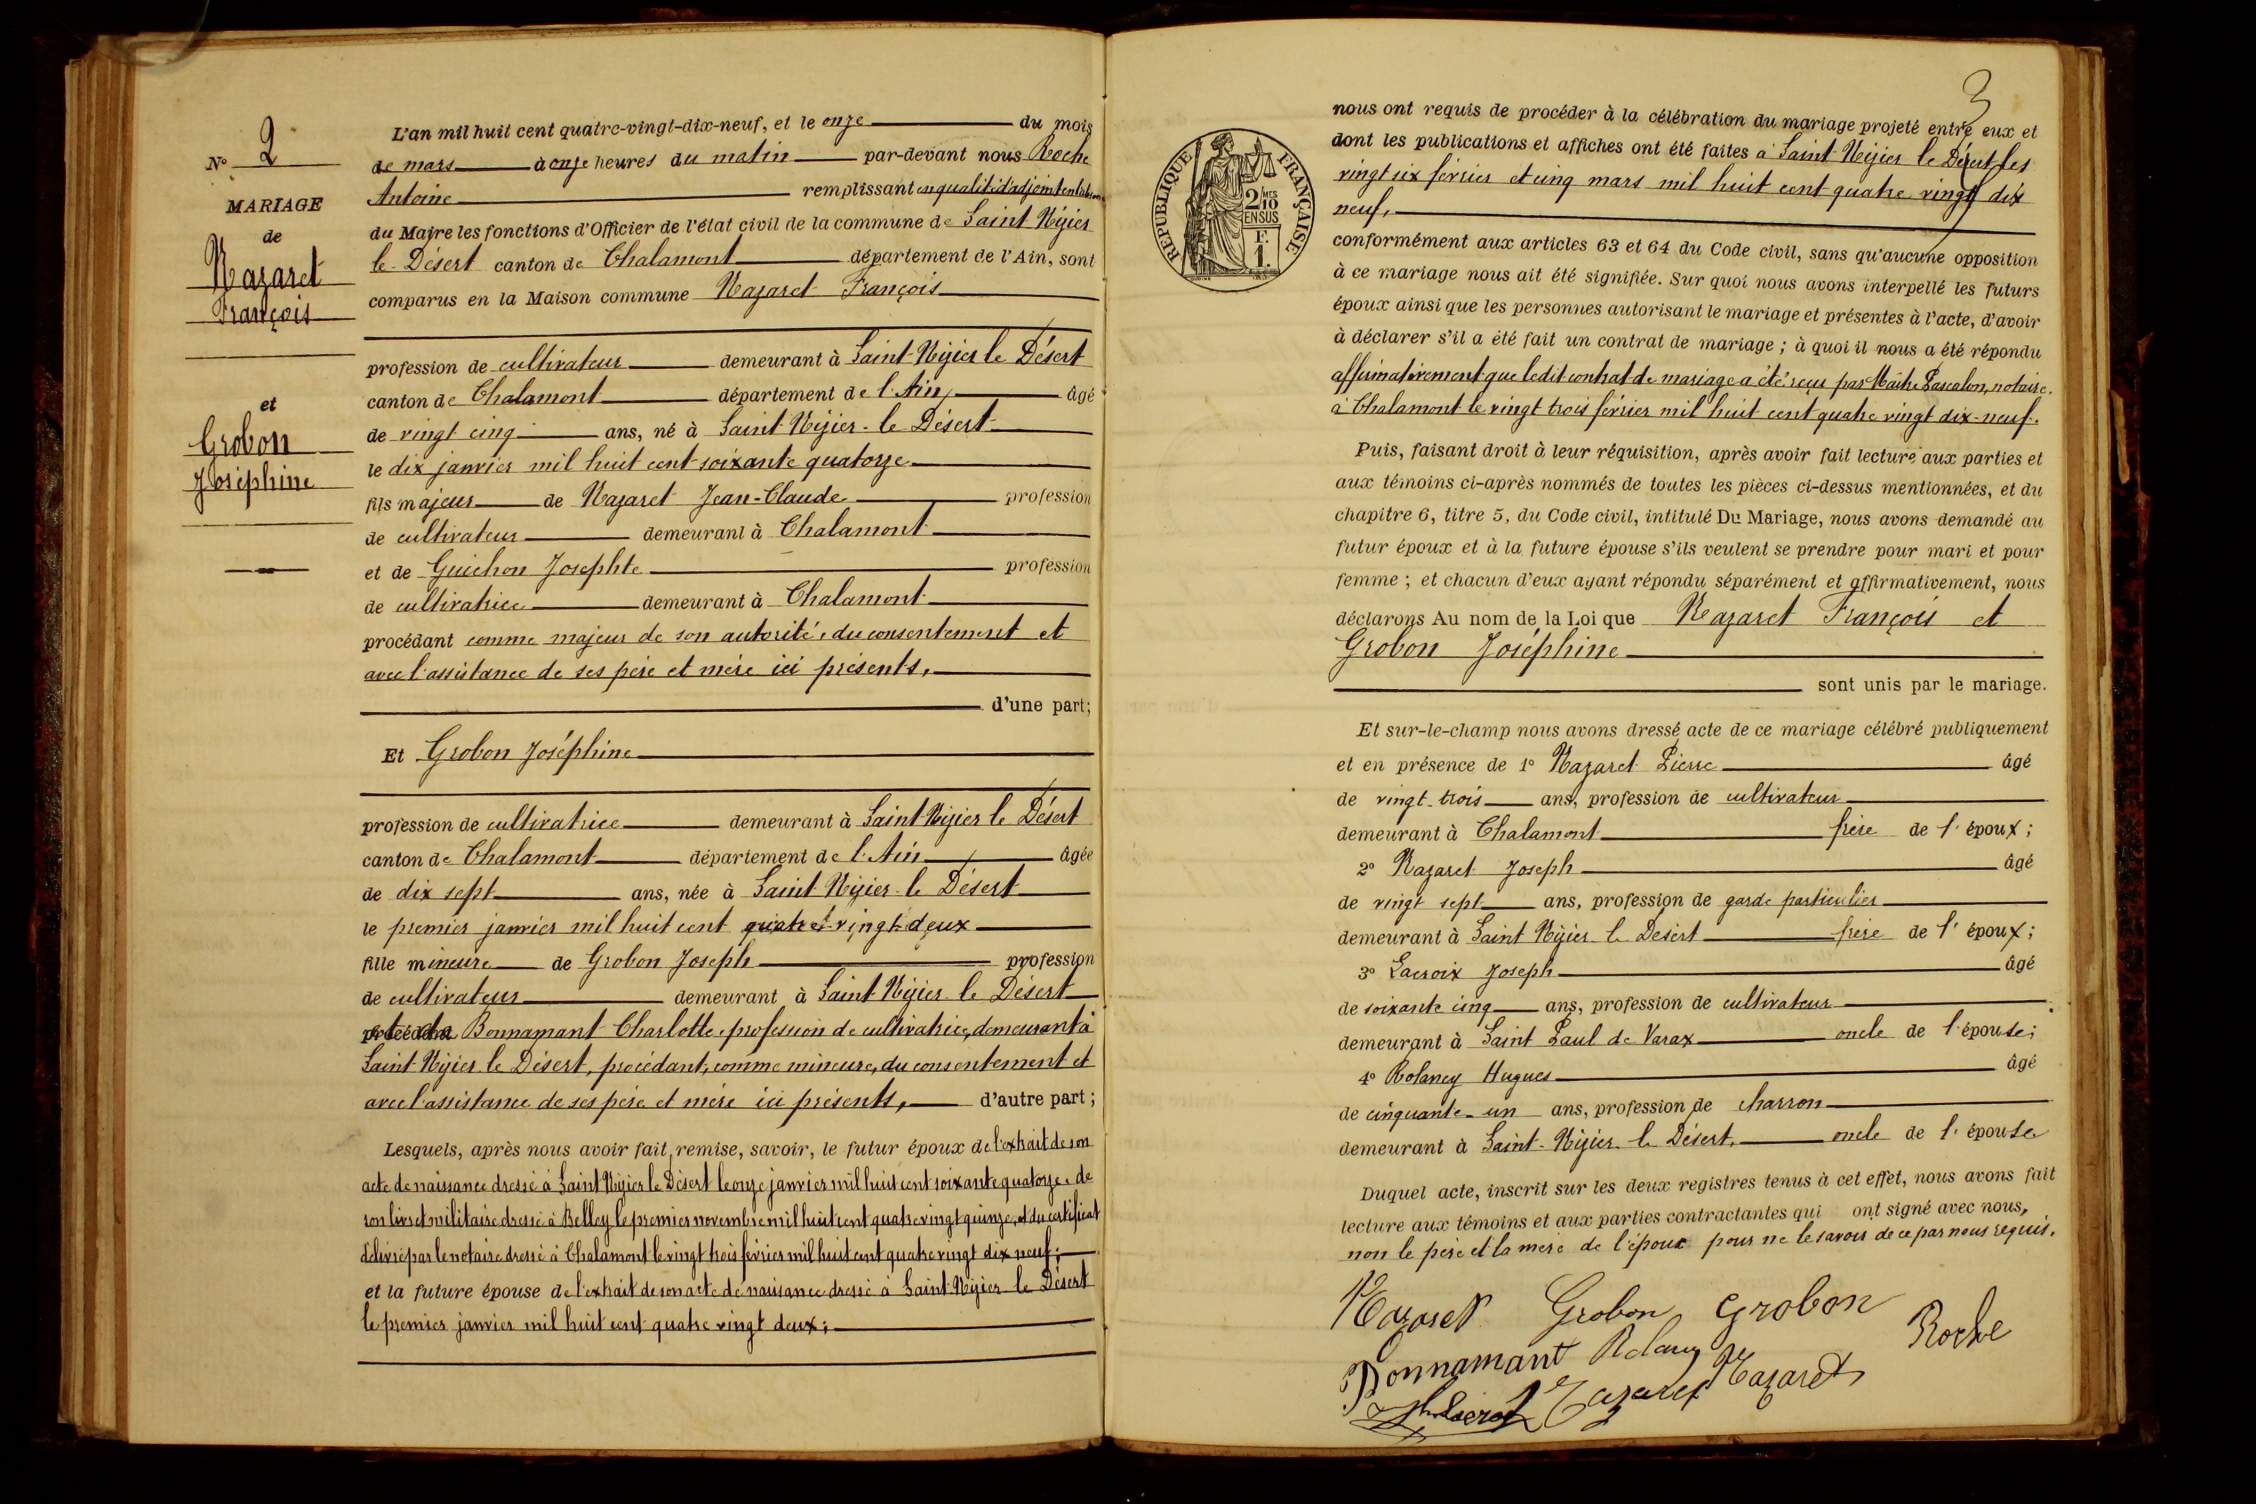 N° 2
MARIAGE
de
Nazaret
François
et
Grobon
Joséphine
L'an mil huit cent quatre-vingt-dix-neuf, et le onze du mois
de mars à onze heures du matin par-devant nous Roche
Antoine remplissant en qualité d'adjoint
du Maire les fonctions d'Officier de l'état civil de la commune de Saint Nizier
le Désert canton de Chalamont département de l'Ain, sont
comparus en la Maison commune Nazaret François
profession de cultivateur demeurant à Saint-Nizier le Désert
canton de Chalamont département de l'Ain, âgé
de vingt cinq ans, né à Saint Nizier-le Désert
le dix janvier mil huit cent soixante quatorze
fils majeur de Nazaret Jean-Claude profession
de cultivateur demeurant à Chalamont
et de Guichon Josephte profession
de cultivatrice demeurant à Chalamont
procédant comme majeur de son autorité, du consentement et
avec l'assistance de ses père et mère ici présents,
d'une part;
Et Grobon Joséphine
profession de cultivatrice demeurant à Saint-Nizier le Désert
canton de Chalamont département de l'Ain âgée
de dix sept ans, née à Saint Nizier-le Désert
le premier janvier mil huit cent quatre-vingt-deux
fille mineure de Grobon Joseph profession
de cultivateur demeurant à Saint Nizier le Désert
et de Bonnamant Charlotte, profession de cultivatrice, demeurant à
Saint-Nizier le Désert, procédant, comme mineure, du consentement et
avec l'assistance de ses père et mère ici présents, d'autre part;
Lesquels, après nous avoir fait remise, savoir, le futur époux de l'extrait de son
acte de naissance dressé à Saint Nizier le Désert le onze janvier mil huit cent soixante quatorze, de
son livret militaire dressé à Belley le premier novembre mil huit cent quatre vingt quinze, et du certificat
délivré par le notaire dressé à Chalamont le vingt trois février mil huit cent quatre vingt dix neuf;
et la future épouse de l'extrait de son acte de naissance dressé à Saint-Nizier le Désert
le premier janvier mil huit cent quatre vingt deux;
3
REPUBLIQUE FRANÇAISE
2/10 MES
EN SUS
F.
1.
nous ont requis de procéder à la célébration du mariage projeté entre eux et
dont les publications et affiches ont été faites à Saint-Nizier le Désert les
vingt six février et cinq mars mil huit cent quatre vingt dix
neuf,
conformément aux articles 63 et 64 du Code civil, sans qu'aucune opposition
à ce mariage nous ait été signifiée. Sur quoi nous avons interpellé les futurs
époux ainsi que les personnes autorisant le mariage et présentes à l'acte, d'avoir
à déclarer s'il a été fait un contrat de mariage; à quoi il nous a été répondu
affirmativement que ledit contrat de mariage a été reçu par Maître Pascalon, notaire
à Chalamont le vingt trois février mil huit cent quatre vingt dix-neuf.
Puis, faisant droit à leur réquisition, après avoir fait lecture aux parties et
aux témoins ci-après nommés de toutes les pièces ci-dessus mentionnées, et du
chapitre 6, titre 5, du Code civil, intitulé Du Mariage, nous avons demandé au
futur époux et à la future épouse s'ils veulent se prendre pour mari et pour
femme; et chacun d'eux ayant répondu séparément et affirmativement, nous
déclarons Au nom de la Loi que Nazaret François et
Grobon Joséphine
sont unis par le mariage.
Et sur-le-champ nous avons dressé acte de ce mariage célébré publiquement
et en présence de 1° Nazaret Pierre âgé
de vingt-trois ans, profession de cultivateur
demeurant à Chalamont frère de l'époux;
2° Nazaret Joseph âgé
de vingt sept ans, profession de garde particulier
demeurant à Saint Nizier le Désert frère de l'époux;
3° Lacroix Joseph âgé
de soixante cinq ans, profession de cultivateur
demeurant à Saint Paul de Varax oncle de l'épouse;
4° Rolancy Hugues âgé
de cinquante-un ans, profession de charron
demeurant à Saint-Nizier-le Désert, oncle de l'épouse
Duquel acte, inscrit sur les deux registres tenus à cet effet, nous avons fait
lecture aux témoins et aux parties contractantes qui ont signé avec nous,
non le père et la mère de l'époux pour ne le savoir de ce par nous requis.
Nazaret Grobon Grobon
Roche
Bonnamant Nazaret
Nazaret